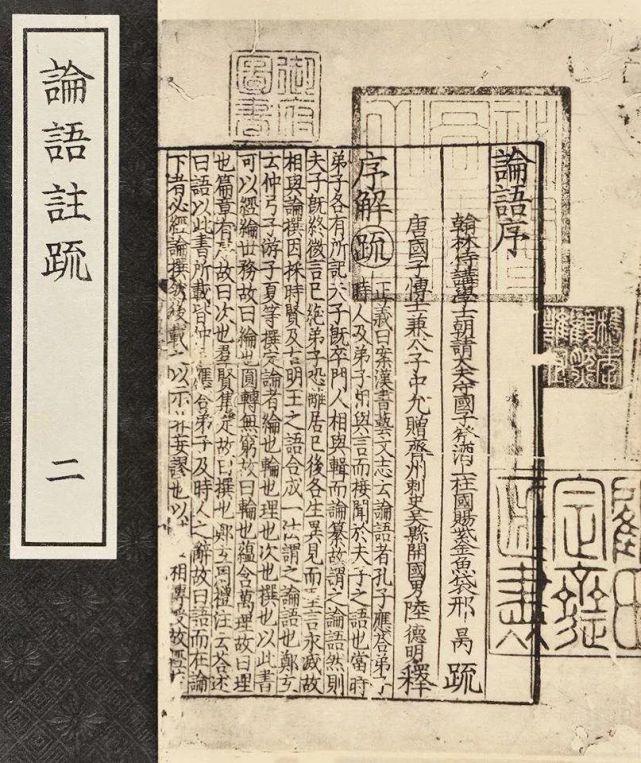 論語註疏 二
御府圖書
論語序
翰林侍講學士朝請大夫守國子祭酒上柱國賜紫金魚袋邢昺疏
唐國子博士兼太子中允贈齊州刺史吳縣開國男陸德明釋
序解疏 正義曰案漢書藝文志云論語者孔子應荅弟子
時人及弟子相與言而接聞於夫子之語也當時
弟子各有所記夫子既卒門人相與輯而論纂故謂之論語然則
夫子既終微言已絕弟子恐離居已後各生異見而聖言永滅故
相與論撰因採時賢及古明王之語合成一法謂之論語也鄭玄
云仲弓子游子夏等撰定論者綸也輪也理也次也撰也以此書
可以經綸世務故曰綸也圓轉無窮故曰輪也蘊含萬理故曰理
也篇章有序故曰次也羣賢集定故曰撰也鄭玄周禮注云荅述
曰語以此書所載皆仲尼應荅弟子及時人之辭故曰語而在論
下者必經論撰然後載之以示非妄謬也以 相傳受故